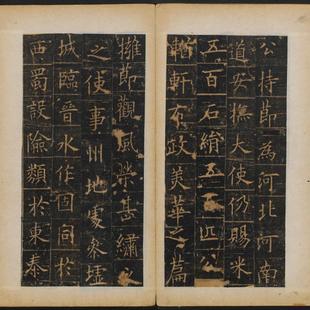 公持節為河北河南
道安撫大使仍賜米
五百石絹五百匹公
輶軒布政美華之篇
擁節觀風榮甚繡
之使事州地處參墟
城臨晉水作固同於
西蜀設險類於東秦